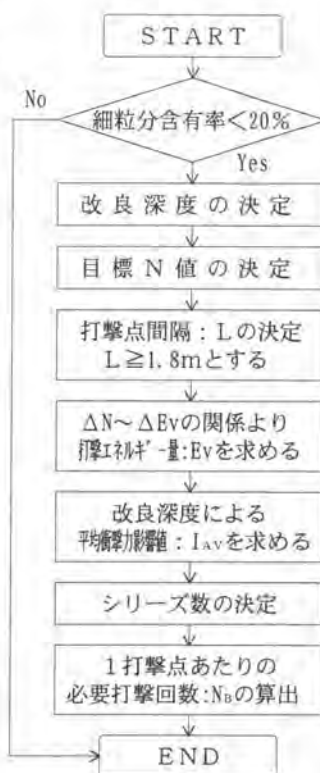 START
No
細粒分含有率<20%
Yes
改良深度の決定
目標N値の決定
打撃点間隔：Lの決定
L≧1.8mとする
ΔN～ΔEvの関係より
打撃エネルギー量:Evを求める
改良深度による
平均衝撃力影響値：IAVを求める
シリーズ数の決定
1打撃点あたりの
必要打撃回数:NBの算出
END